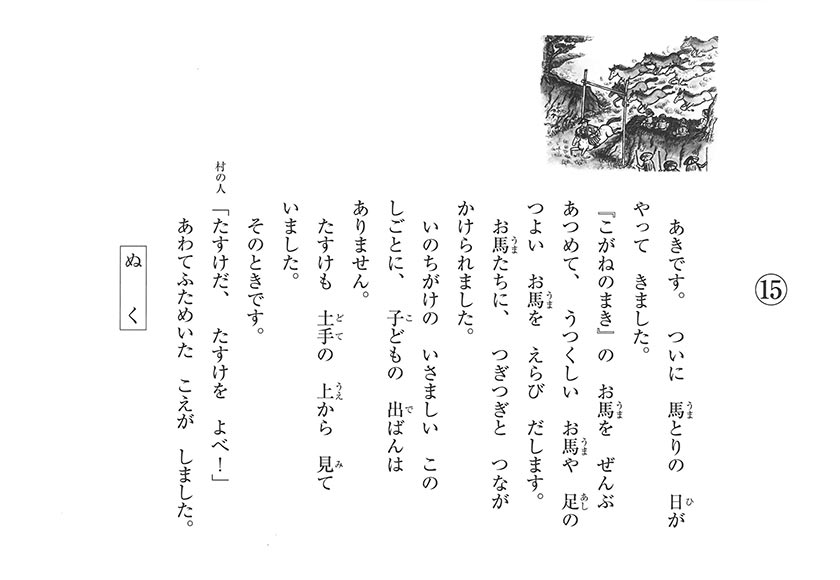 ⑮
あきです。　ついに　馬とりの　日が
やって　きました。
『こがねのまき』の　お馬を　ぜんぶ
あつめて、　うつくしい　お馬や　足の
つよい　お馬を　えらび　だします。
お馬たちに、　つぎつぎと　つなが
かけられました。
いのちがけの　いさましい　この
しごとに、　子どもの　出ばんは
ありません。
たすけも　土手の　上から　見て
いました。
そのときです。
村の人「たすけだ、　たすけを　よべ！」
あわてふためいた　こえが　しました。
ぬく